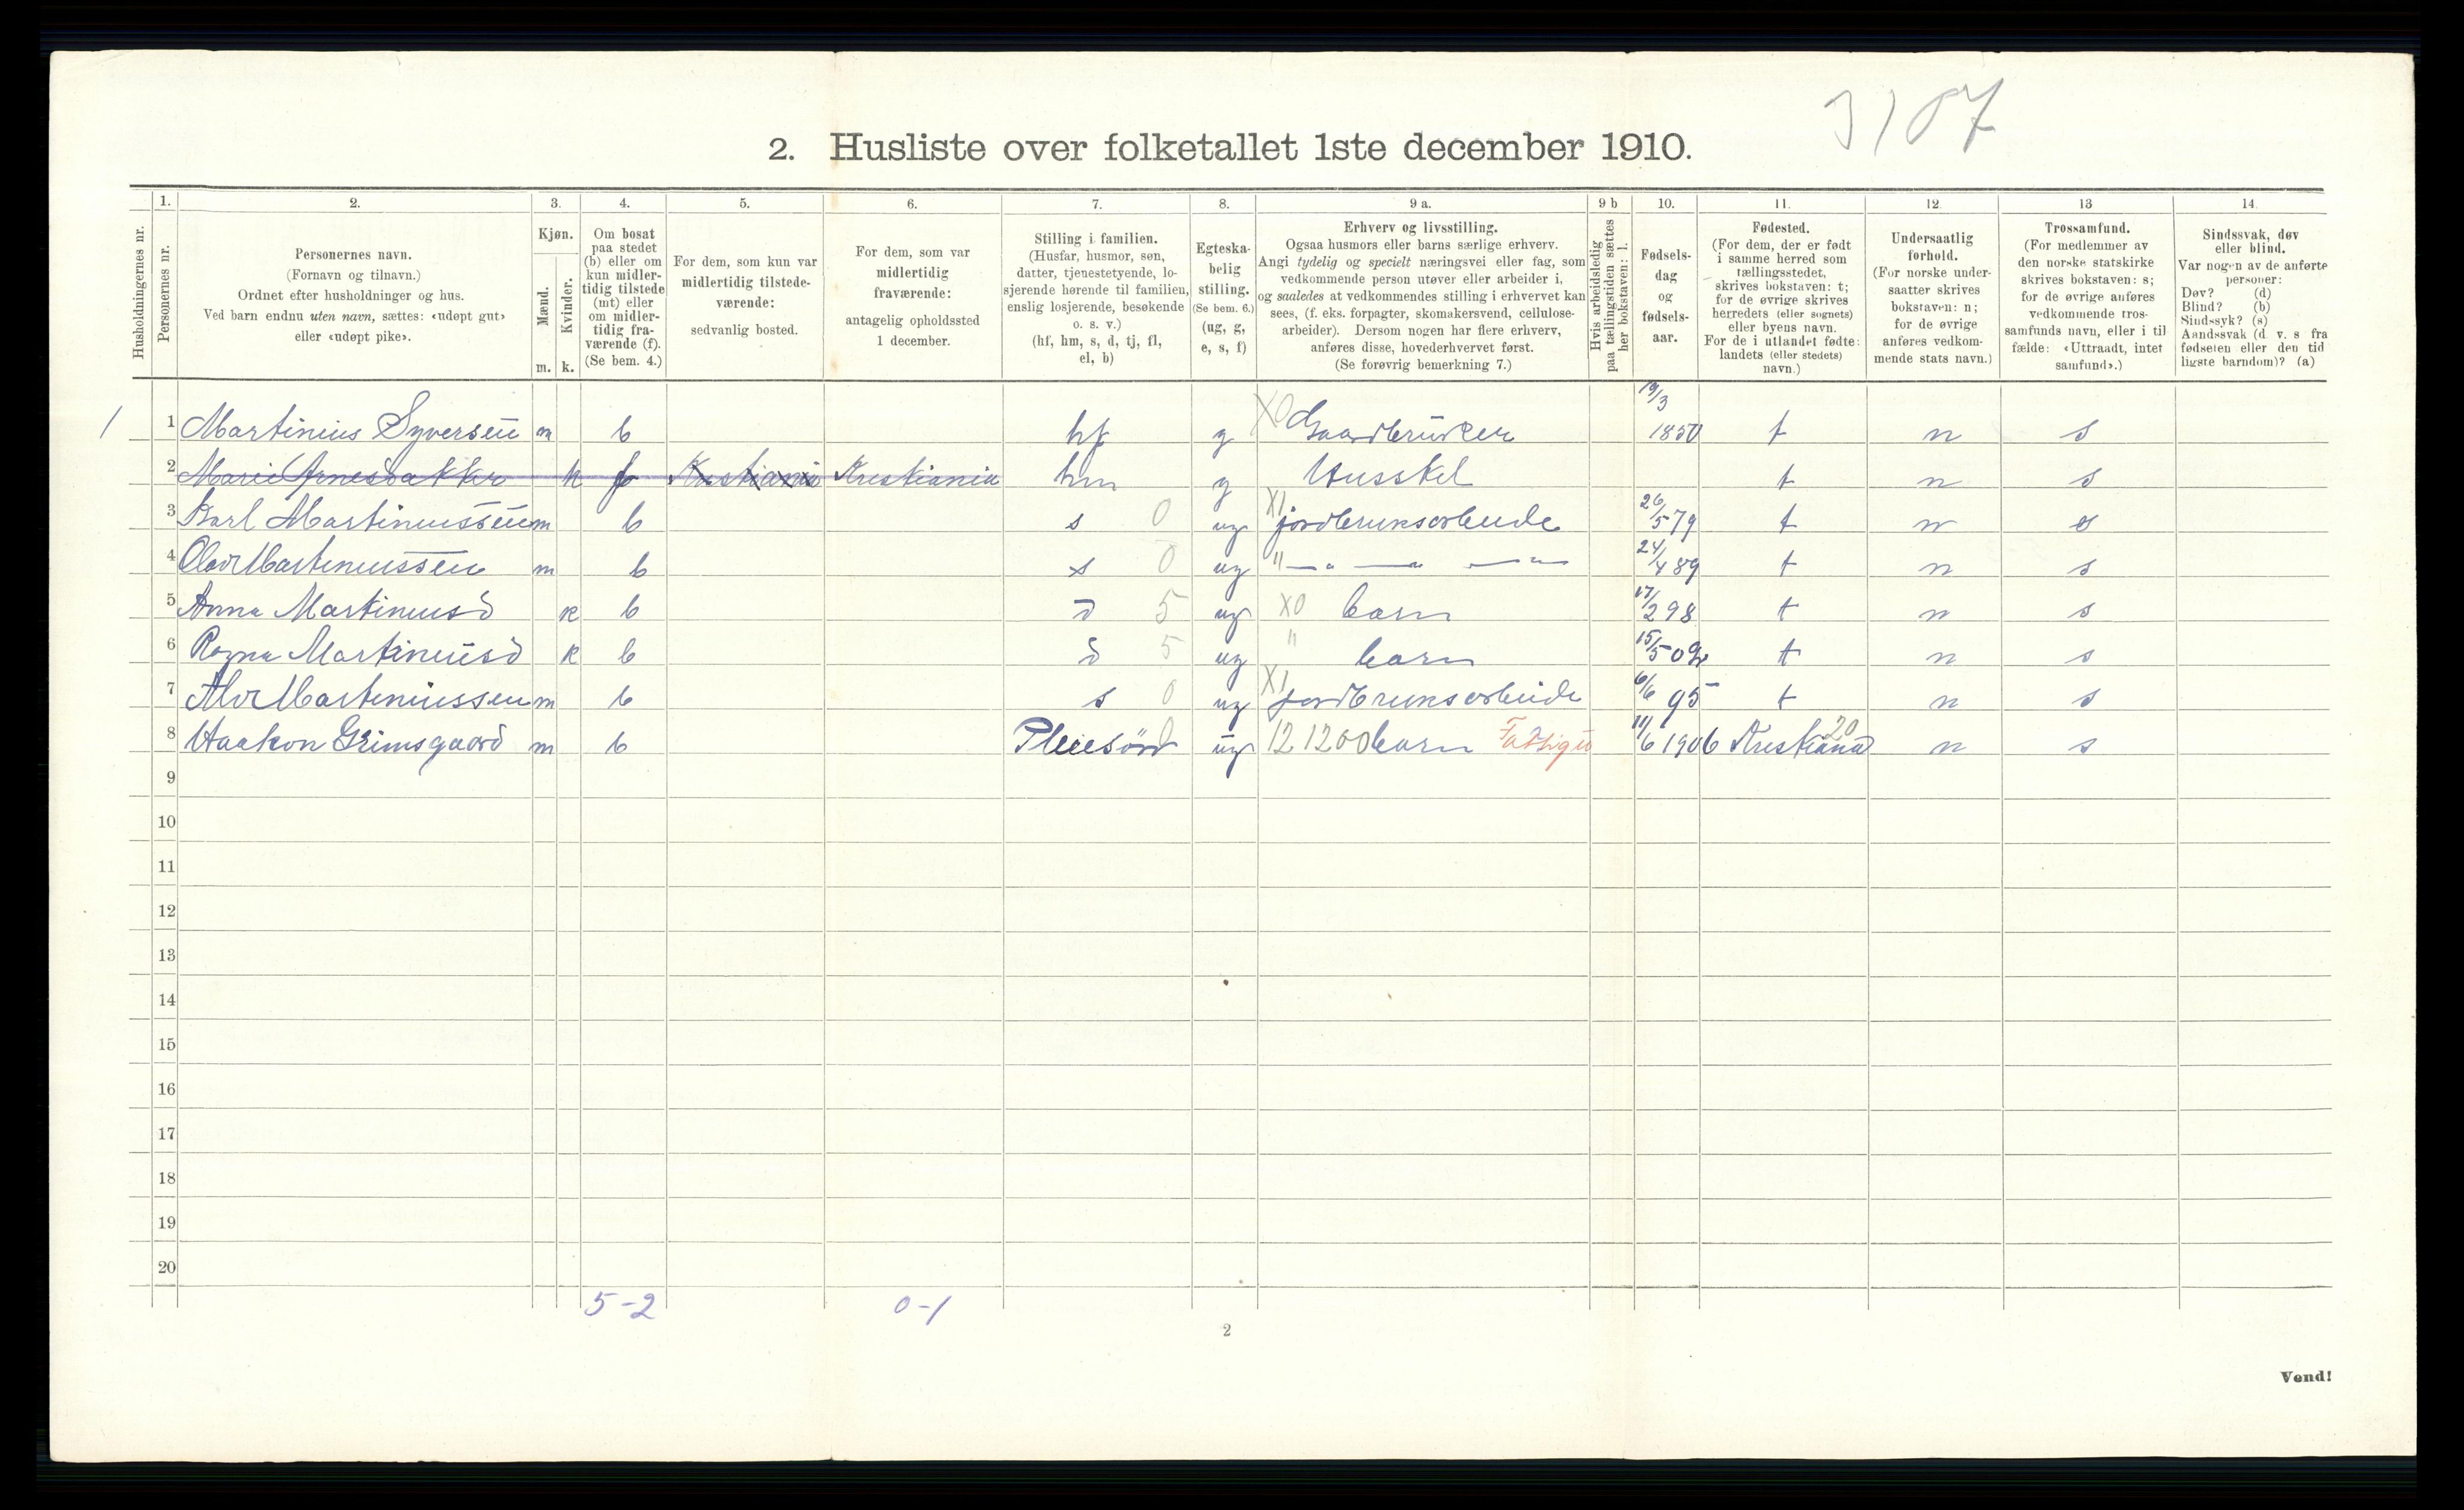 3107
2. Husliste over folketallet 1ste december 1910.
Husholdningernes nr.
1. Personernes nr.
2. Personernes navn.
(Fornavn og tilnavn.)
Ordnet efter husholdninger og hus.
Ved barn endnu uten navn, sættes: «udøpt gut»
eller «udøpt pike».
3. Kjøn.
Mænd. m.
Kvinder. k.
4. Om bosat
paa stedet
(b) eller om
kun midler-
tidig tilstede
(mt) eller
om midler-
tidig fra-
værende (f).
(Se bem. 4.)
5. For dem, som kun var
midlertidig tilstede-
værende:
sedvanlig bosted.
6. For dem, som var
midlertidig
fraværende:
antagelig opholdssted
1 december.
7. Stilling i familien.
(Husfar, husmor, søn,
datter, tjenestetyende, lo-
sjerende hørende til familien,
enslig losjerende, besøkende
o. s. v.)
(hf, hm, s, d, tj, fl,
el, b)
8. Egteska-
belig
stilling.
(Se bem. 6.)
(ug, g,
e, s, f)
9 a. Erhverv og livsstilling.
Ogsaa husmors eller barns særlige erhverv.
Angi tydelig og specielt næringsvei eller fag, som
vedkommende person utøver eller arbeider i,
og saaledes at vedkommendes stilling i erhvervet kan
sees, (f. eks. forpagter, skomakersvend, cellulose-
arbeider). Dersom nogen har flere erhverv,
anføres disse, hovederhvervet først.
(Se forøvrig bemerkning 7.)
9 b Hvis arbeidsledig
paa tællingstiden sættes
her bokstaven: l.
10. Fødsels-
dag
og
fødsels-
aar.
11. Fødested.
(For dem, der er født
i samme herred som
tællingsstedet,
skrives bokstaven: t;
for de øvrige skrives
herredets (eller sognets)
eller byens navn.
For de i utlandet fødte:
landets (eller stedets)
navn.)
12. Undersaatlig
forhold.
(For norske under-
saatter skrives
bokstaven: n;
for de øvrige
anføres vedkom-
mende stats navn.)
13 Trossamfund.
(For medlemmer av
den norske statskirke
skrives bokstaven: s;
for de øvrige anføres
vedkommende tros-
samfunds navn, eller i til
fælde: «Uttraadt, intet
samfund».)
14. Sindssvak, døv
eller blind.
Var nogen av de anførte
personer:
Døv? (d)
Blind? (b)
Sindssyk? (s)
Aandssvak (d v. s fra
fødselen eller den tid
ligste barndom)? (a)
1 1 Martinius Syversen m b hf g X0 Gaardbruker 19/3 1850 t n s
2 Marie Arnesbakken k f Kristiania Kristiania hm g Husstel t n s
3 Karl Martinussen m b s 0 ug X1 jordbruksarbeide 26/5 79 t n s
4 Olav Martinussen m b s 0 ug " — " — — " — 24/4 89 t n s
5 Anna Martinusd k b d 5 ug X0 barn 17/2 98 t n s
6 Ragna Martinusd k b d 5 ug " barn 15/5 02 t n s
7 Alv Martinussen m b s 0 ug X1 jordbruksarbeide 6/6 95 t n s
8 Haakon Grimsgaard m b Pleiesøn 0 ug 12 1200 barn Fattigu 11/6 1906 Kristiania 20 n s
9
10
11
12
13
14
15
16
17
18
19
20
5-2 0-1
2
Vend!